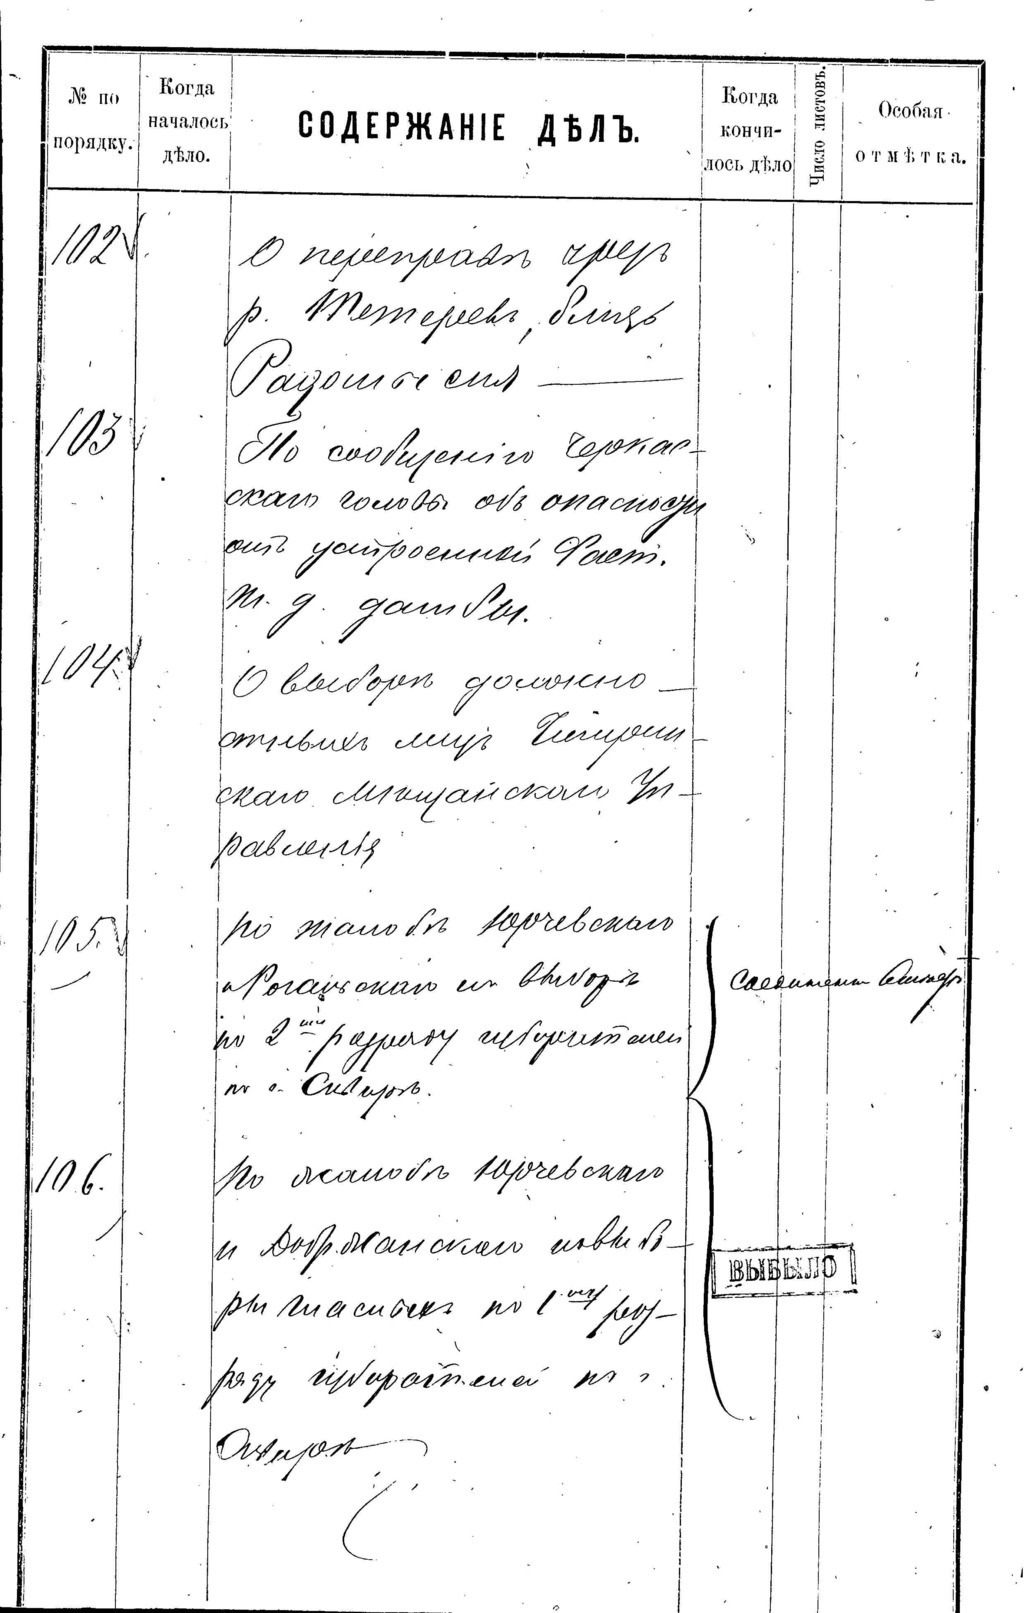 № по порядку.
Когда началось дѣло.
СОДЕРЖАНІЕ ДѢЛЪ.
Когда кончилось дѣло
Число листовъ.
Особая отмѣтка.
102
О переправѣ чрезъ
р. Тетеревъ, близь
Радомысля
103
По сообщенію Черкас-
скаго головы объ опасности
отъ устроенной Фаст.
ж. д. дамбы.
104.
О выборѣ должно-
стныхъ лицъ Чигирин-
скаго Мѣщанскаго Уп-
равленія
105.
По жалобѣ Юрчевскаго
выборъ
по 2му разряду избирателей
въ г. Сквирѣ.
106.
По жалобѣ Юрчевскаго
и Добржанскаго о выбо-
ры гласныхъ по 1му раз-
ряду избирателей въ г.
Сквирѣ
ВЫБЫЛО